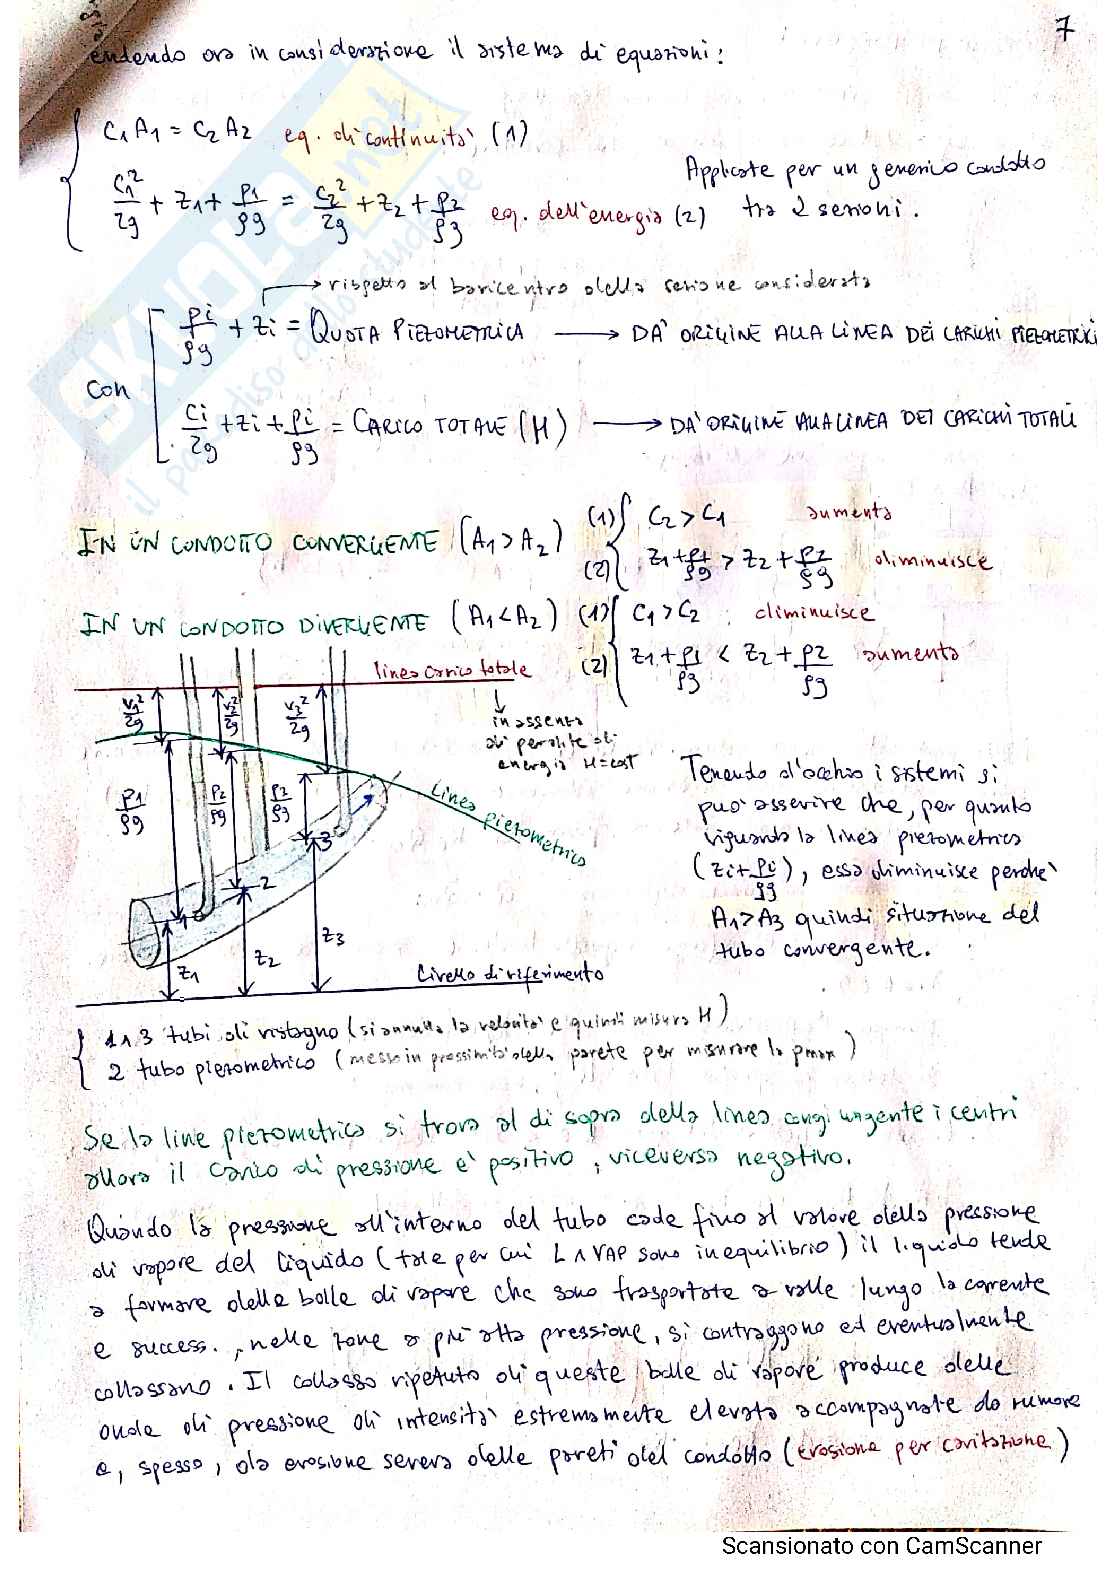 7
endendo ora in considerazione il sistema di equazioni:
C₁A₁ = C₂A₂ eq. di continuità (1)
C₁²/2g + z₁ + p₁/ρg = C₂²/2g + z₂ + p₂/ρg eq. dell'energia (2)
Applicate per un generico condotto
tra 2 sezioni.
rispetto al baricentro della sezione considerata
con
pi/ρg + zi = QUOTA PIEZOMETRICA → DA' ORIGINE ALLA LINEA DEI CARICHI PIEZOMETRICI
ci/2g + zi + pi/ρg = CARICO TOTALE (H) → DA' ORIGINE ALLA LINEA DEI CARICHI TOTALI
IN UN CONDOTTO CONVERGENTE (A₁>A₂) (1) C₂>C₁ aumenta
(2) z₁+p₁/ρg > z₂+p₂/ρg diminuisce
IN UN CONDOTTO DIVERGENTE (A₁<A₂) (1) C₁>C₂ diminuisce
(2) z₁+p₁/ρg < z₂+p₂/ρg aumenta
linea carico totale
in assenza
di perdite di
energia H=cost
v₁²/2g v₂²/2g v₃²/2g
p₁/ρg p₂/ρg p₃/ρg
linea piezometrica
1 2 3
z₁ z₂ z₃
Livello di riferimento
Tenendo d'occhio i sistemi si
può asserire che, per quanto
riguarda la linea piezometrica
(zi+pi/ρg), essa diminuisce perchè
A₁>A₃ quindi situazione del
tubo convergente.
1 ∧ 3 tubi di ristagno (si annulla la velocità e quindi misura H)
2 tubo piezometrico (messo in prossimità della parete per misurare la pmax)
Se la line piezometrica si trova al di sopra della linea congiungente i centri
allora il carico di pressione è positivo, viceversa negativo.
Quando la pressione all'interno del tubo cade fino al valore della pressione
di vapore del liquido (tale per cui L ∧ VAP sono in equilibrio) il liquido tende
a formare delle bolle di vapore che sono trasportate a valle lungo la corrente
e success., nelle zone a più alta pressione, si contraggono ed eventualmente
collassano. Il collasso ripetuto di queste bolle di vapore produce delle
onde di pressione di intensità estremamente elevata accompagnate da rumore
e, spesso, da erosione severa delle pareti del condotto (erosione per cavitazione)
SKUOLA.not
il paradiso dello studente
Scansionato con CamScanner